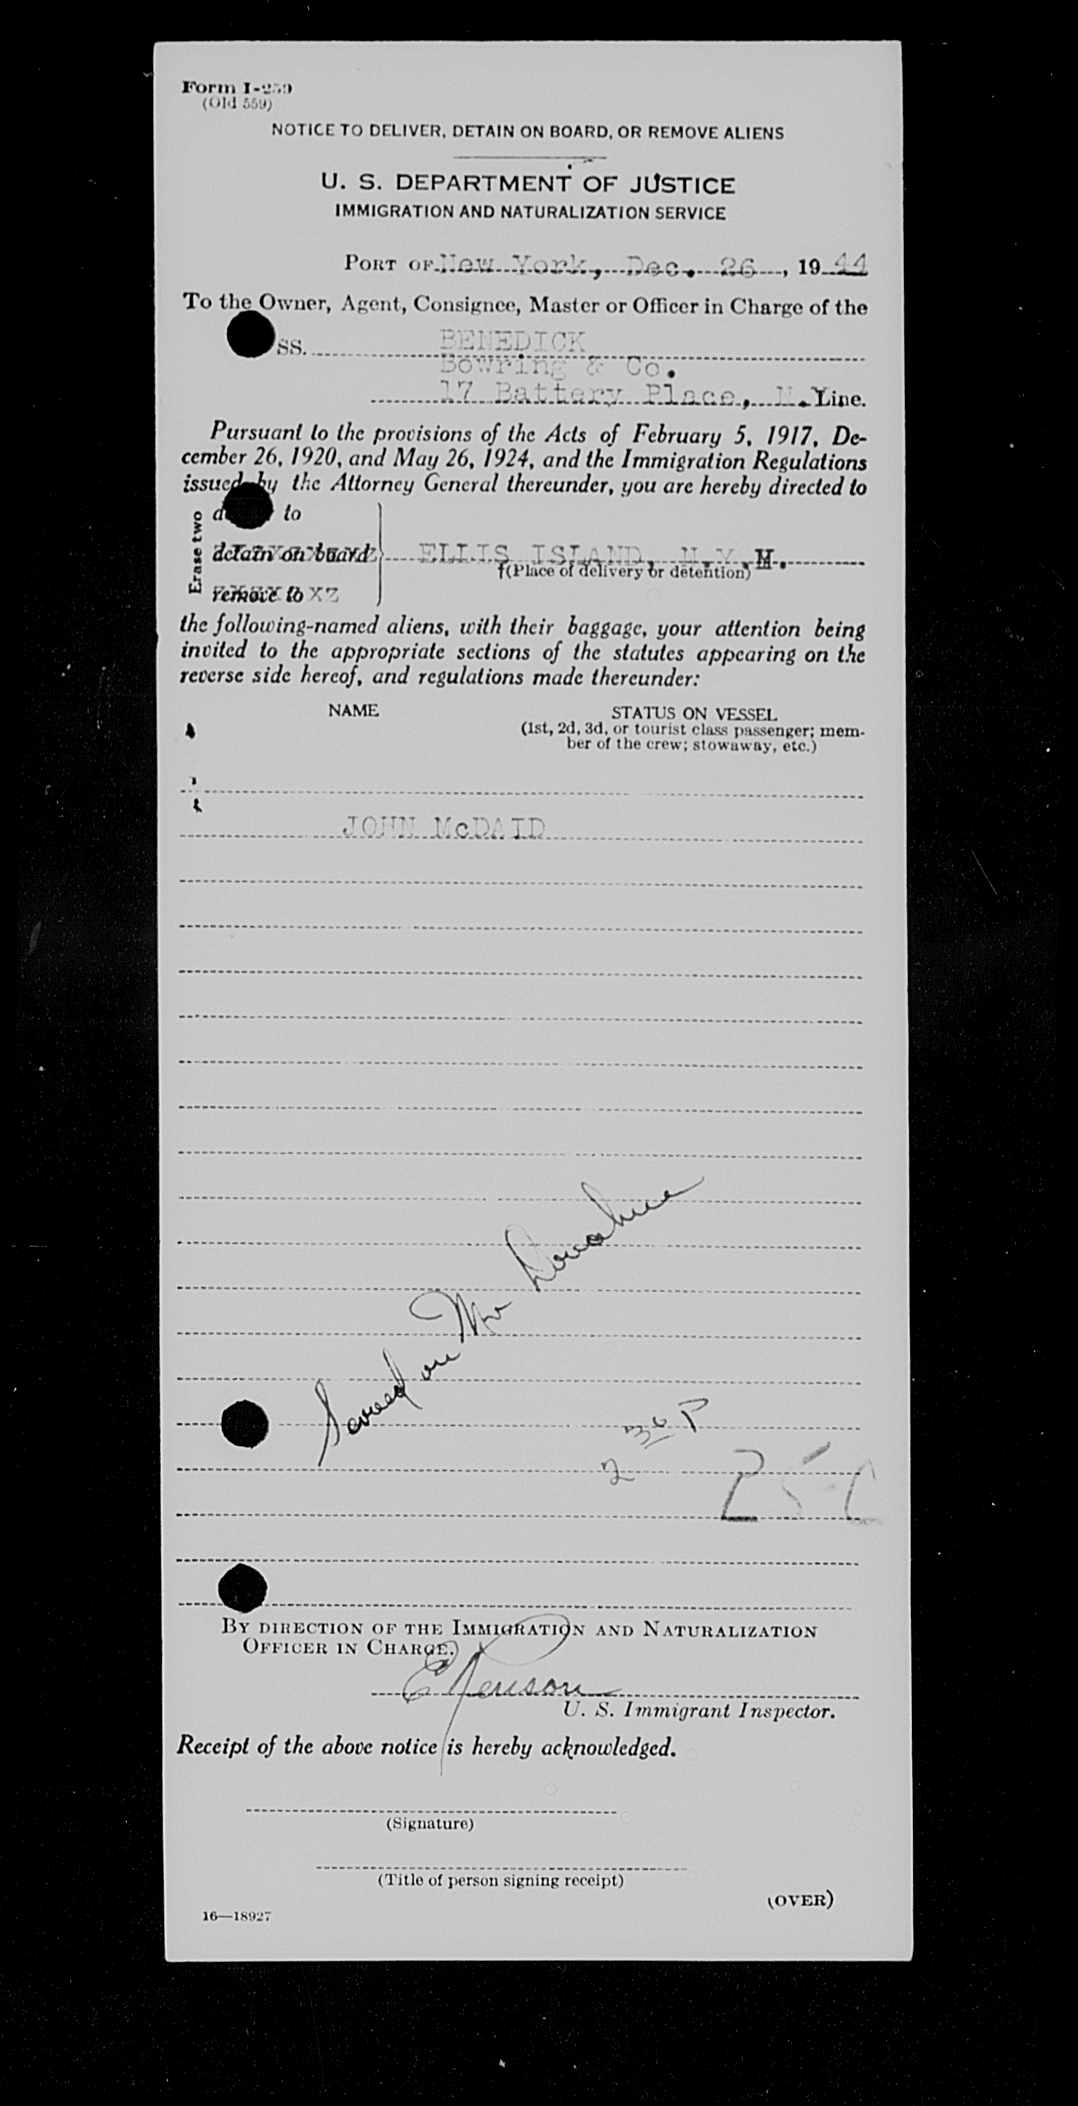 Form I-259
(Old 559)
NOTICE TO DELIVER, DETAIN ON BOARD, OR REMOVE ALIENS
U. S. DEPARTMENT OF JUSTICE
IMMIGRATION AND NATURALIZATION SERVICE
PORT OF New York, Dec. 26, 1944
To the Owner, Agent, Consignee, Master or Officer in Charge of the
SS. BENEDICK
Bowring & Co.
17 Battery Place, N.Y. Line.
Pursuant to the provisions of the Acts of February 5, 1917, De-
cember 26, 1920, and May 26, 1924, and the Immigration Regulations
issued by the Attorney General thereunder, you are hereby directed to
Erase two
to
detain on board
ELLIS ISLAND, N.Y.H.
(Place of delivery or detention)
remove to XZ
the following-named aliens, with their baggage, your attention being
invited to the appropriate sections of the statutes appearing on the
reverse side hereof, and regulations made thereunder:
NAME STATUS ON VESSEL
(1st, 2d, 3d, or tourist class passenger; mem-
ber of the crew; stowaway, etc.)
JOHN McDAID
Served on Mr Donahue
2 30 P
By direction of the Immigration and Naturalization
Officer in Charge.
U. S. Immigrant Inspector.
Receipt of the above notice is hereby acknowledged.
(Signature)
(Title of person signing receipt)
(OVER)
16—18927